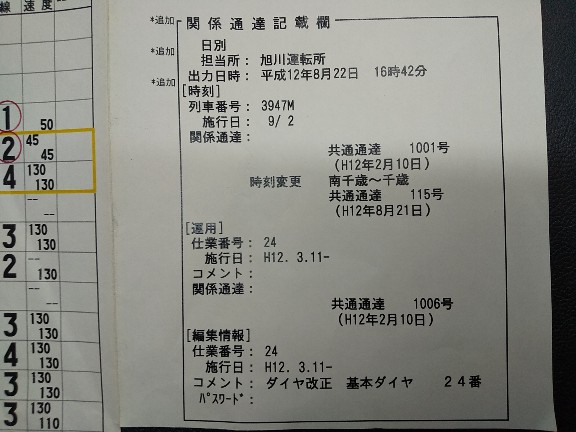 線 速度
1 50
2 45 45
4 130 130
-- --
3 130 130
2 -- 130
-- --
3 130 130
4 130 130
3 130 130
3 130 110
*追加 関係通達記載欄
日別
*追加 担当所： 旭川運転所
*追加 出力日時： 平成12年8月22日 16時42分
[時刻]
列車番号： 3947M
施行日： 9/ 2
関係通達：
共通通達 1001号
(H12年2月10日)
時刻変更 南千歳～千歳
共通通達 115号
(H12年8月21日)
[運用]
仕業番号： 24
施行日： H12. 3.11-
コメント：
関係通達：
共通通達 1006号
(H12年2月10日)
[編集情報]
仕業番号： 24
施行日： H12. 3.11-
コメント： ダイヤ改正 基本ダイヤ ２４番
ﾊﾟｽﾜｰﾄﾞ：